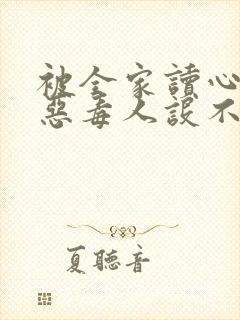 被全家讀心
惡毒人設不
夏聽音